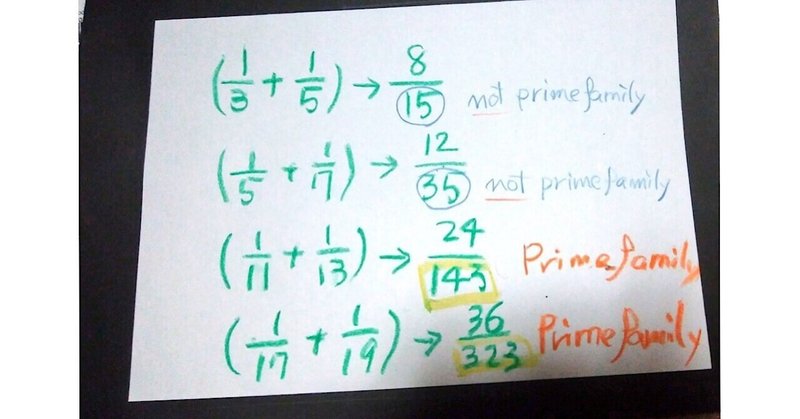 (1/3 + 1/5) → 8/15 not prime family
(1/5 + 1/7) → 12/35 not prime family
(1/11 + 1/13) → 24/143 Prime family
(1/17 + 1/19) → 36/323 Prime family